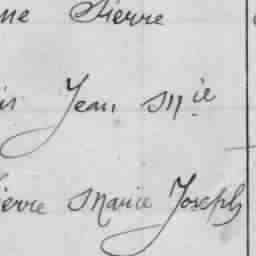 ne Pierre
is Jean Mie
ierre Marie Joseph